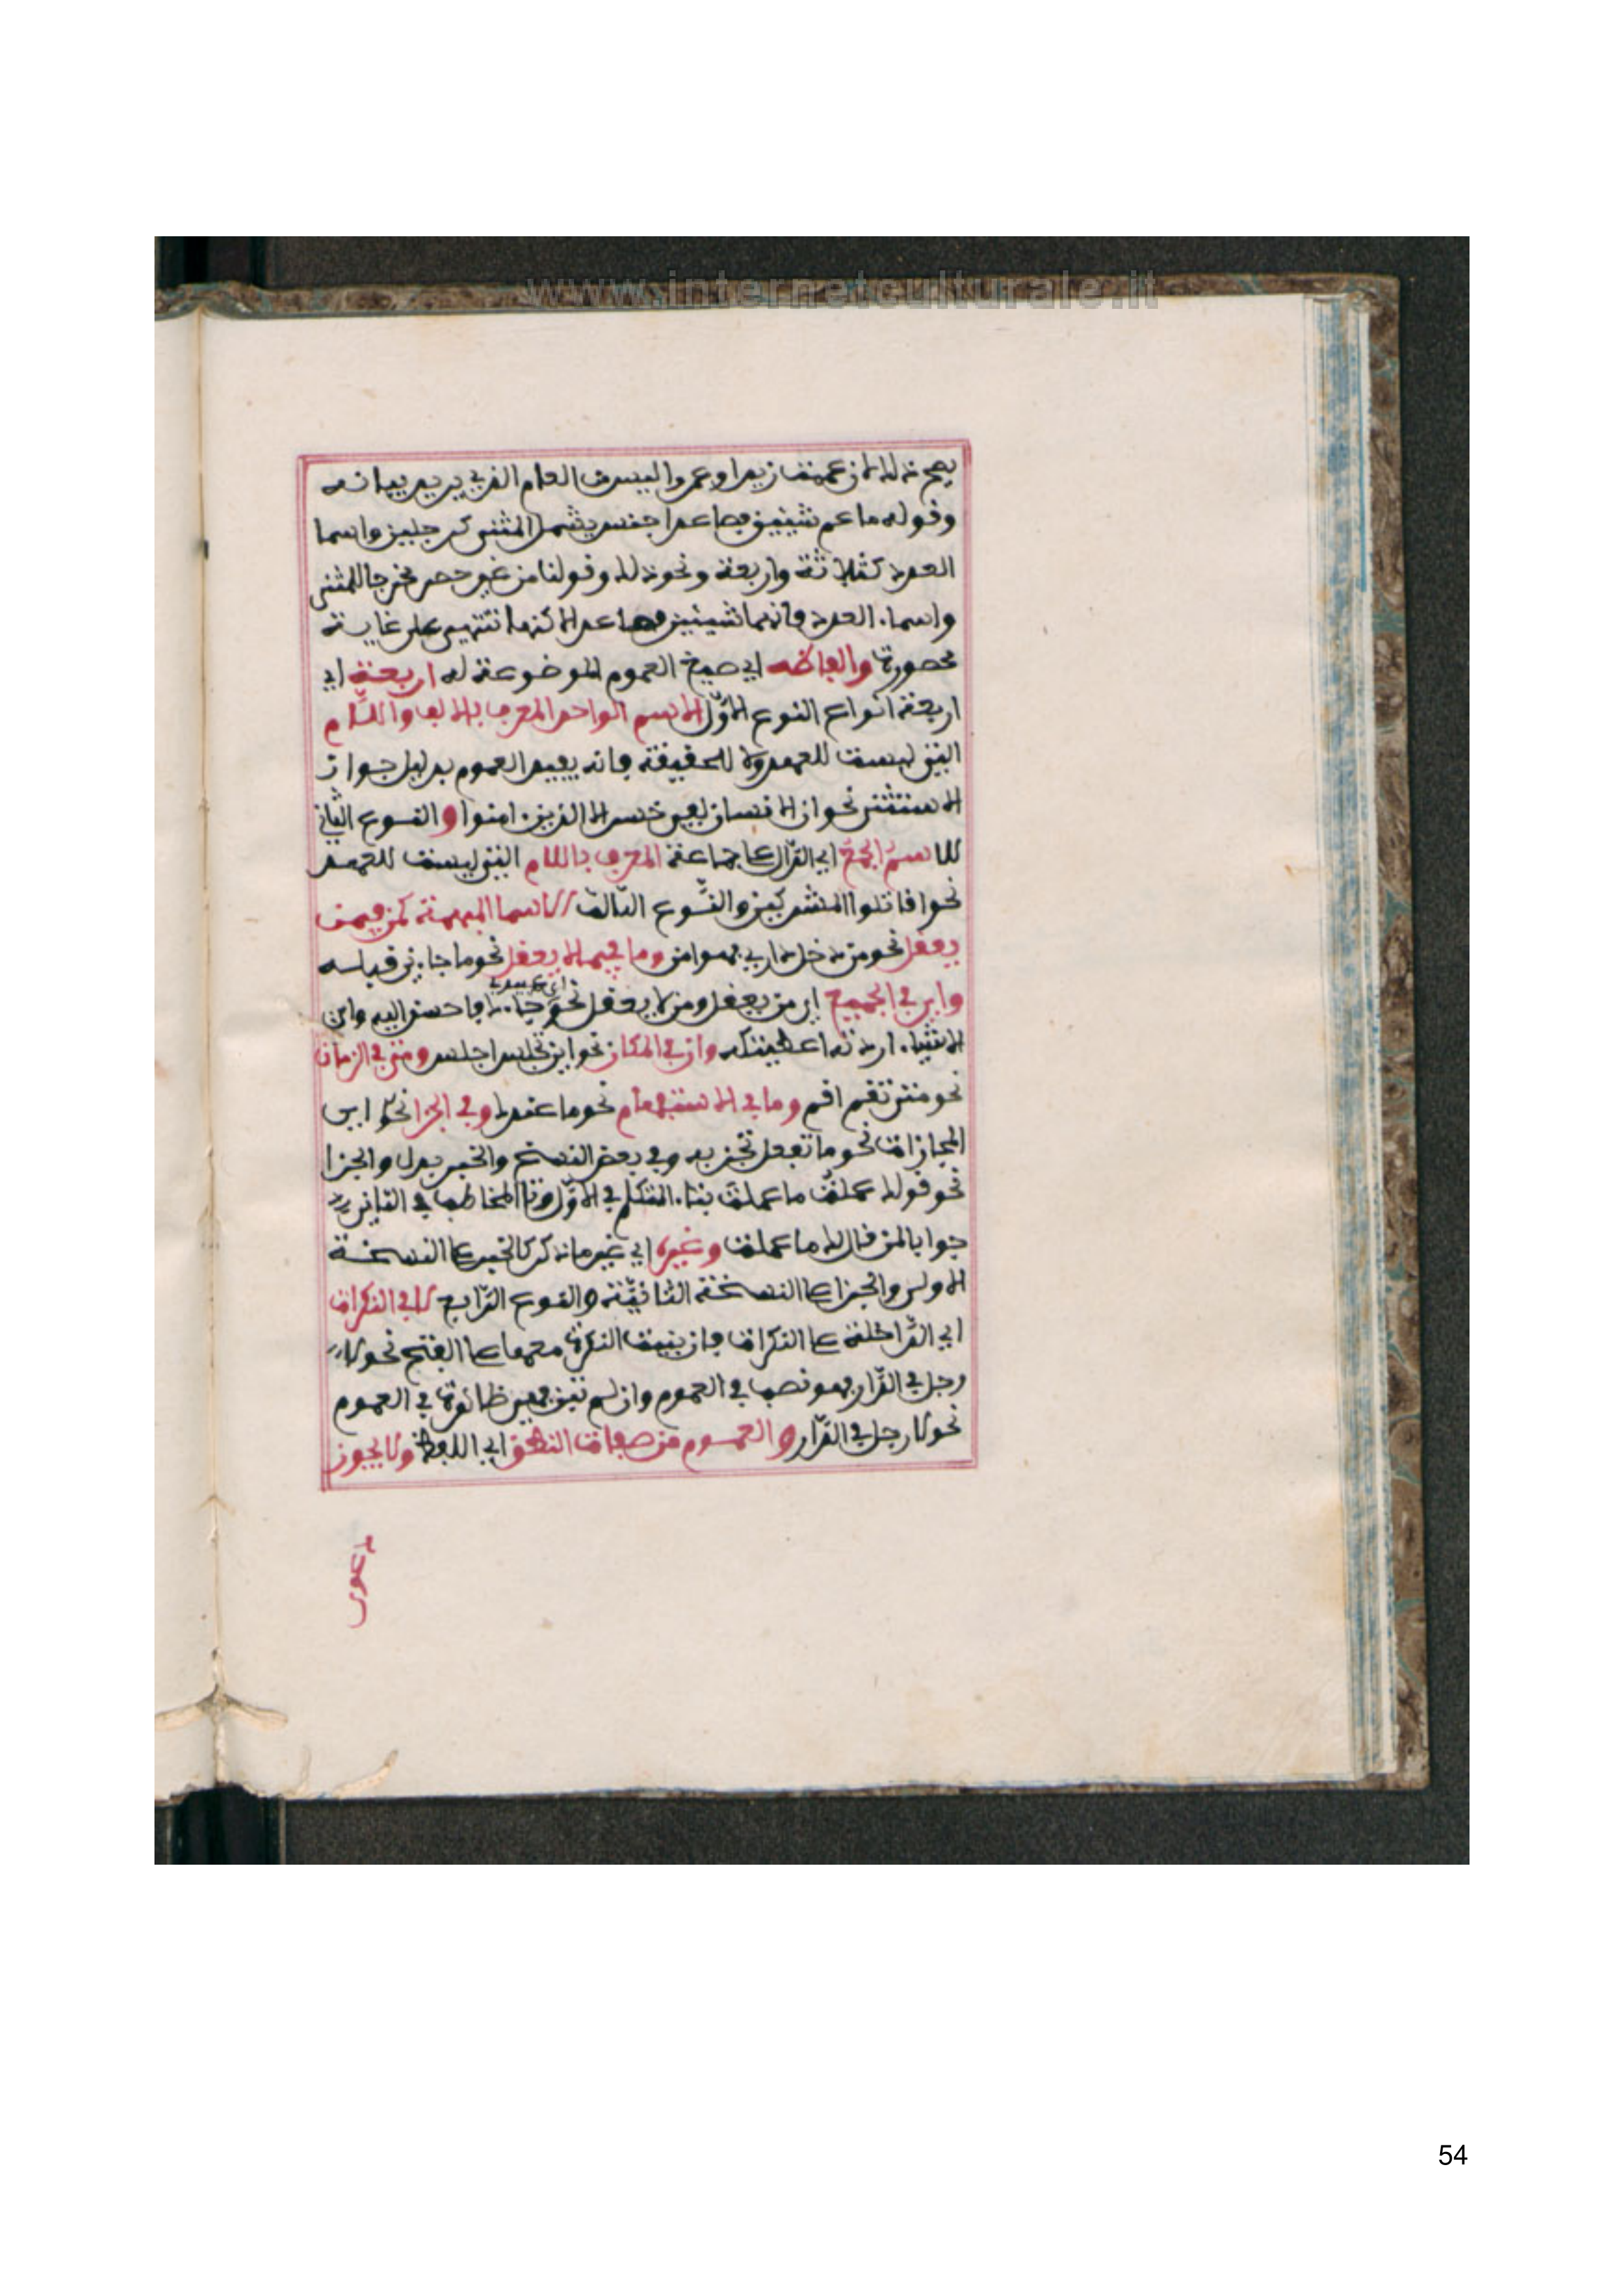 www.internetculturale.it
يصح ذلك لان عممت زيدا وعمرو اليس من العام الذي يريد بيانه
وقوله ما عم شيئين فصاعدا جنس يشمل المثنى كرجلين واسما
العدد كثلاثة واربعة ونحو ذلك وقولنا من غير حصر مخرجا للمثنى
واسماء العدد فانهما شيئين فصاعدا لاكنها تنتهي على غاية
محصورة والفاظه اي صيغ العموم الموضوعة له اربعة اي
اربعة انواع النوع الاوّل الاسم الواحد المعرف بالالف واللّام
التي ليست للعهد ولا للحقيقة فانه يفيد العموم بدليل جواز
الاستثنى نحو ان الانسان لفي خسر الا الذين امنوا و النوع الثاني
للاسم الجمع اي الدّال على جماعة المعرف باللام التي ليست للعهد
نحو اقاتلوا المشركين والنّوع الثالث الاسما المبهمة كمن فيمن
يعقل نحو من دخل داري فهو امن وما فيما لا يعقل نحو ما جاءني قباسه
واي في الجميع اي من يعقل ومن لا يعقل نحو اي عبيدي جاءك فاحسن اليه واي
الاشياء اردته اعطيتكه واين في المكان نحو اين تجلس اجلس ومتى في الزمان
نحو متى تقم اقم وما في الاستفهام نحو ما عندك وفي الجزا نحو اي
المجازات نحو ما تفعل تجز به وفي بعض النسخ والخبر بدل والجزا
نحو قولك عملتُ ما عملتَ بتاء المتكلم في الاوّل وتا المخاطب في الثاني
جوابا لمن قال لك ما عملت وغيره اي غير ما ذكر كالخبر على النسخة
الاولى والجزا على النسخة الثانيّة والنوع الرّابع لا في النكرات
اي الدّاخلة على النكرات فان بنيت النكرة معها على الفتح نحو لا
رجل في الدّار فهو نص في العموم وان لم تبن فهي ظاهرة في العموم
نحو لا رجل في الدّار و العموم من صفات النطق اي اللفظ ولا يجوز
دعوى
54